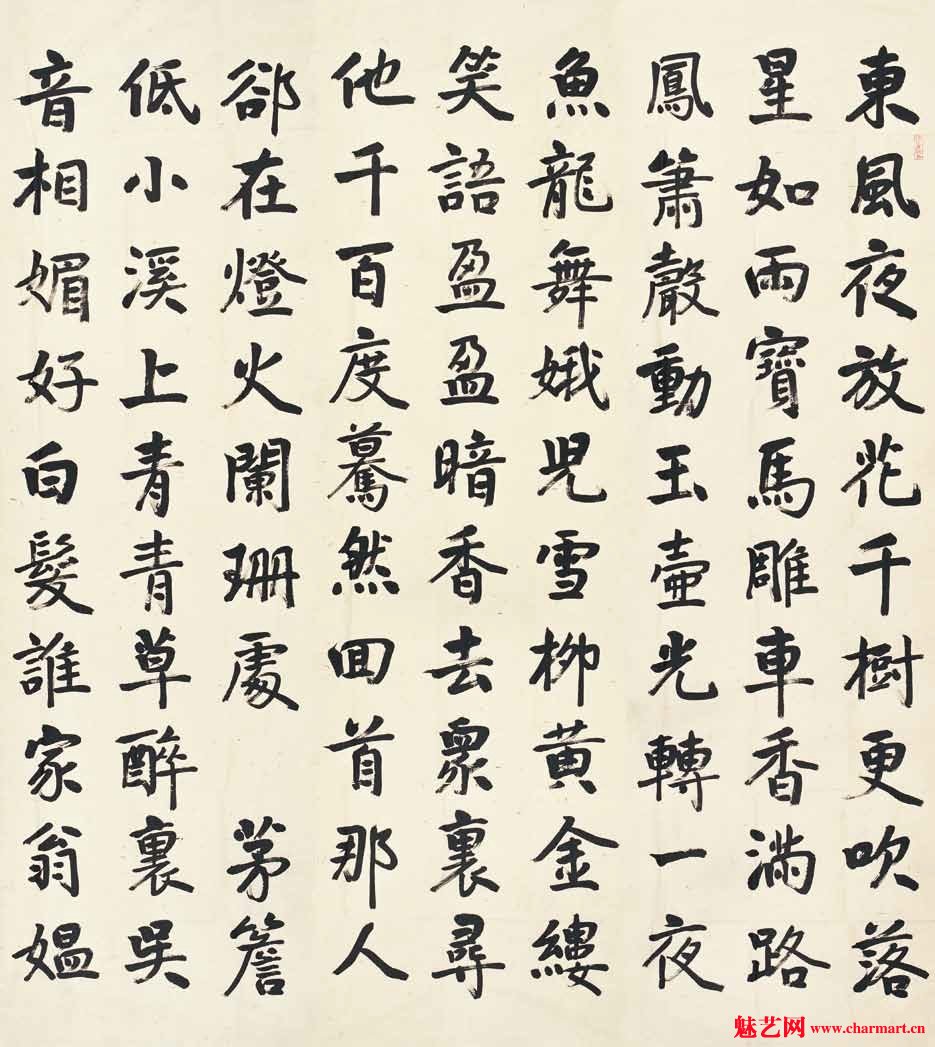 東風夜放花千樹更吹落
星如雨寶馬雕車香滿路
鳳簫聲動玉壺光轉一夜
魚龍舞娥兒雪柳黃金縷
笑語盈盈暗香去衆裏尋
他千百度驀然回首那人
卻在燈火闌珊處 茅簷
低小溪上青青草醉裏吴
音相媚好白髮誰家翁媼
魅艺网 www.charmart.cn